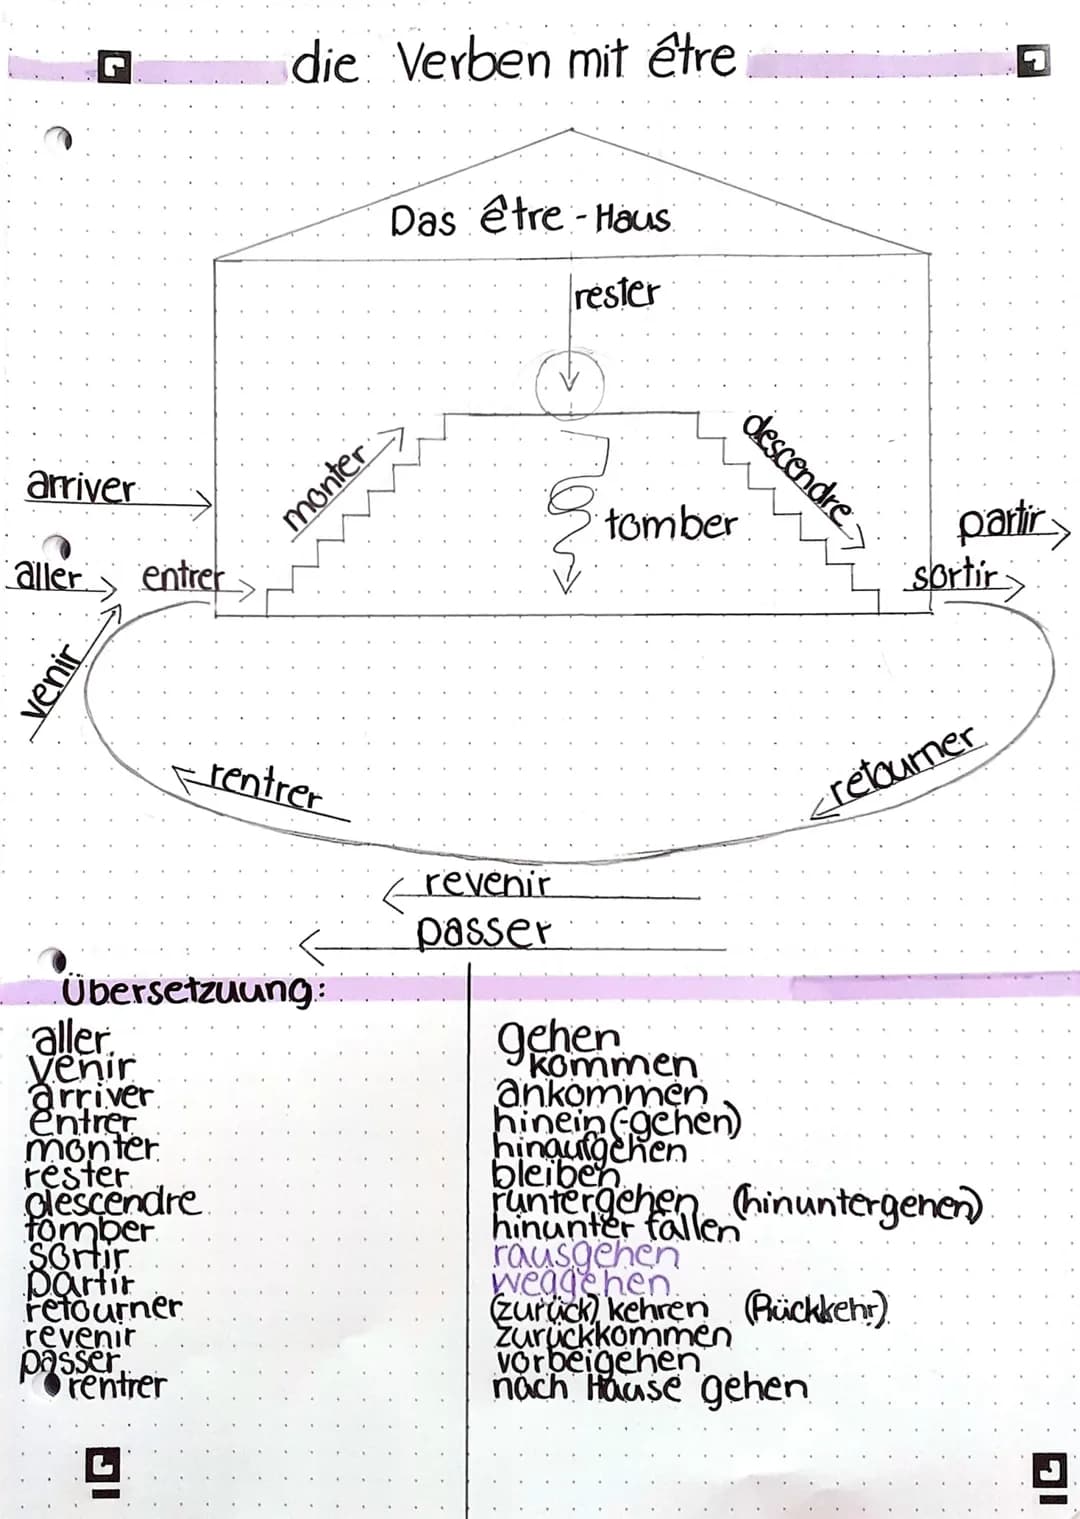 die Verben mit être
Das être-Haus
rester
monter
descendre
arriver
tomber
partir
aller
entrer
sortir
venir
rentrer
retourner
revenir
passer
Übersetzuung:
aller gehen
venir kommen
arriver ankommen
entrer hinein(-gehen)
monter hinaufgehen
rester bleiben
descendre runtergehen (hinuntergehen)
tomber hinunter fallen
sortir rausgehen
partir weggehen
retourner (zurück) kehren (Rückkehr)
revenir zurückkommen
passer vorbeigehen
rentrer nach Hause gehen